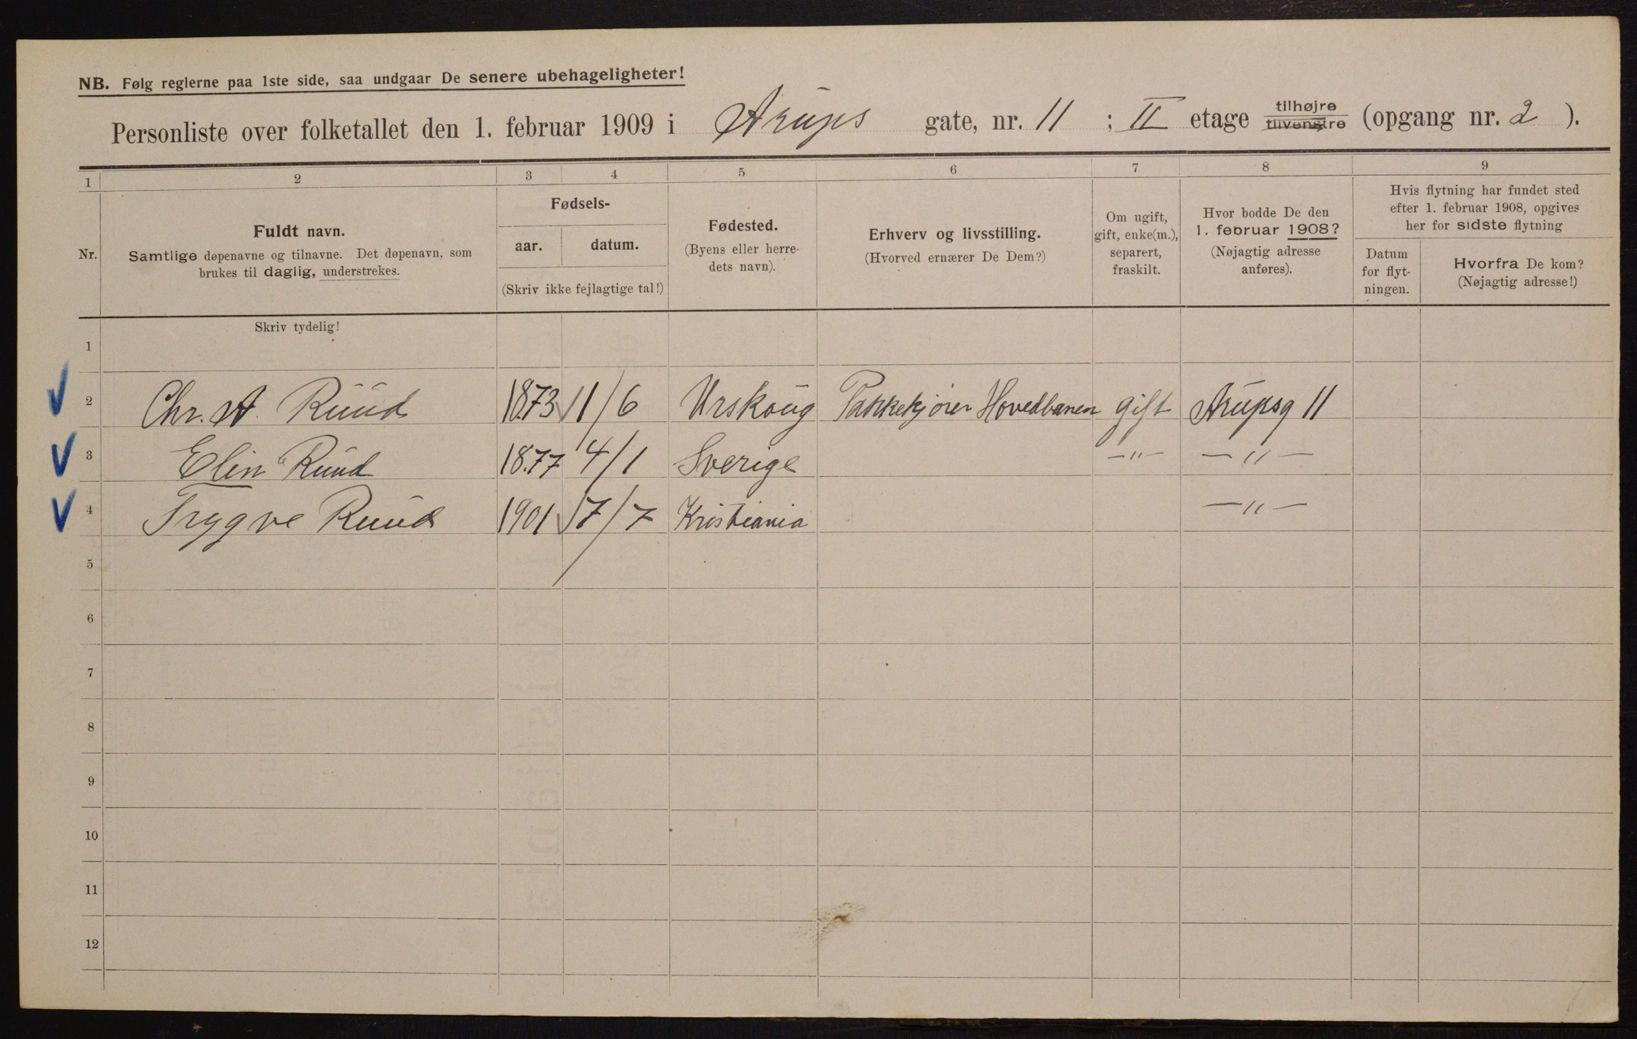 NB. Følg reglerne paa 1ste side, saa undgaar De senere ubehageligheter!
Personliste over folketallet den 1. februar 1909 i Arups gate, nr. 11 ; II etage tilhøjre tilvenstre (opgang nr. 2 ).
1 2 3 4 5 6 7 8 9
Nr.
Fuldt navn.
Samtlige døpenavne og tilnavne. Det døpenavn, som
brukes til daglig, understrekes.
Fødsels-
aar. datum.
(Skriv ikke fejlagtige tal!)
Fødested.
(Byens eller herre-
dets navn).
Erhverv og livsstilling.
(Hvorved ernærer De Dem?)
Om ugift,
gift, enke(m.),
separert,
fraskilt.
Hvor bodde De den
1. februar 1908?
(Nøjagtig adresse
anføres).
Hvis flytning har fundet sted
efter 1. februar 1908, opgives
her for sidste flytning
Datum
for flyt-
ningen.
Hvorfra De kom?
(Nøjagtig adresse!)
Skriv tydelig!
1
2 Chr. A. Ruud 1873 1/6 Urskoug Pakkekjører Hovedbanen gift Arupsg 11
3 Elin Ruud 1877 4/1 Sverige —"— —"—
4 Trygve Ruud 1901 7/7 Kristiania —"—
5
6
7
8
9
10
11
12